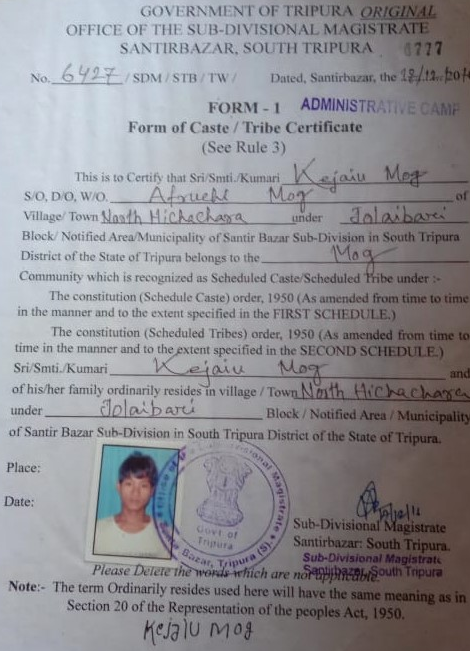 GOVERNMENT OF TRIPURA ORIGINAL
OFFICE OF THE SUB-DIVISIONAL MAGISTRATE
SANTIRBAZAR, SOUTH TRIPURA 0777
No. 6427 / SDM / STB / TW / Dated, Santirbazar, the
FORM - 1 ADMINISTRATIVE CAMP
Form of Caste / Tribe Certificate
(See Rule 3)
This is to Certify that Sri/Smti./Kumari Kejaiu Mog
S/O, D/O, W/O. Afruchi Mog of
Village/ Town North Hichachara under Jolaibari
Block/ Notified Area/Municipality of Santir Bazar Sub-Division in South Tripura
District of the State of Tripura belongs to the Mog
Community which is recognized as Scheduled Caste/Scheduled Tribe under :-
The constitution (Schedule Caste) order, 1950 (As amended from time to time
in the manner and to the extent specified in the FIRST SCHEDULE.)
The constitution (Scheduled Tribes) order, 1950 (As amended from time to
time in the manner and to the extent specified in the SECOND SCHEDULE.)
Sri/Smti./Kumari Kejaiu Mog and
of his/her family ordinarily resides in village / Town North Hichachara
under Jolaibari Block / Notified Area / Municipality
of Santir Bazar Sub-Division in South Tripura District of the State of Tripura.
Place:
Date:
Govt of
Tripura
Sub-Divisional Magistrate
Santirbazar: South Tripura.
Sub-Divisional Magistrate
Santirbazar, South Tripura
Please Delete the words which are not applicable.
Note:- The term Ordinarily resides used here will have the same meaning as in
Section 20 of the Representation of the peoples Act, 1950.
Kejaiu Mog